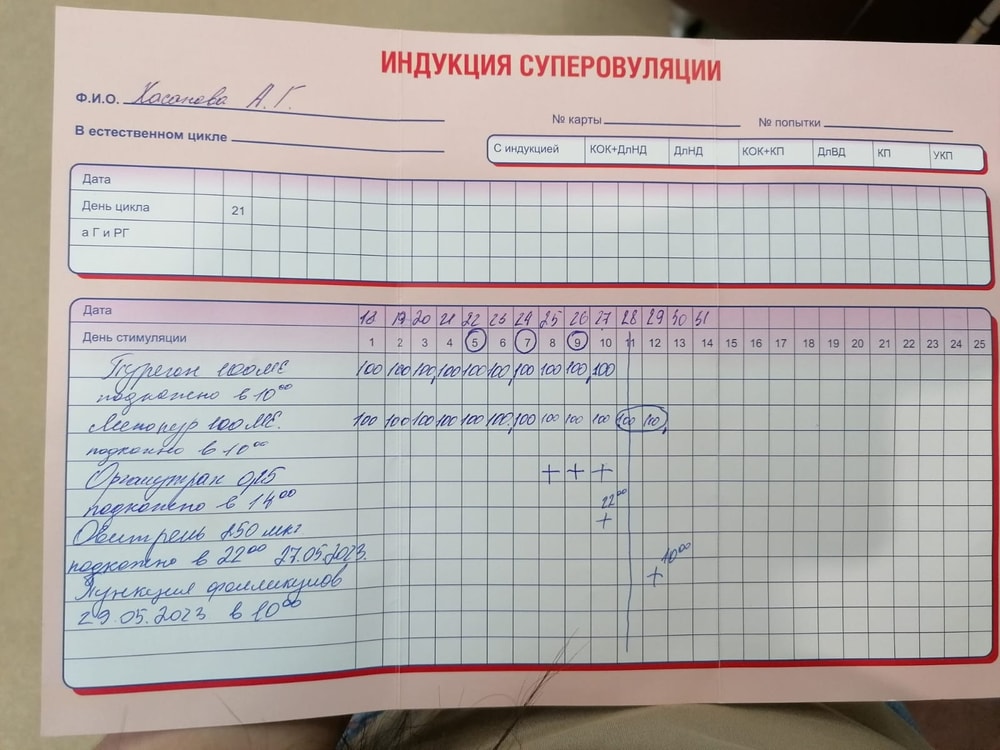 ИНДУКЦИЯ СУПЕРОВУЛЯЦИИ
Ф.И.О. Хасанова А.Г.
№ карты № попытки
В естественном цикле
С индукцией КОК+ДлНД ДлНД КОК+КП ДлВД КП УКП
Дата
День цикла 21
а Г и РГ
Дата 18 19 20 21 22 23 24 25 26 27 28 29 30 31
День стимуляции 1 2 3 4 5 6 7 8 9 10 11 12 13 14 15 16 17 18 19 20 21 22 23 24 25
Пурегон 100МЕ 100 100 100 100 100 100 100 100 100 100
подкожно в 10⁰⁰
Менопур 100МЕ. 100 100 100 100 100 100 100 100 100 100 100 100
подкожно в 10⁰⁰
Оргалутран 0,25 + + +
подкожно в 14⁰⁰ 22⁰⁰
Овитрель 250 мкг +
подкожно в 22⁰⁰ 27.05.2023. 10⁰⁰
Пункция фолликулов +
29.05.2023 в 10⁰⁰